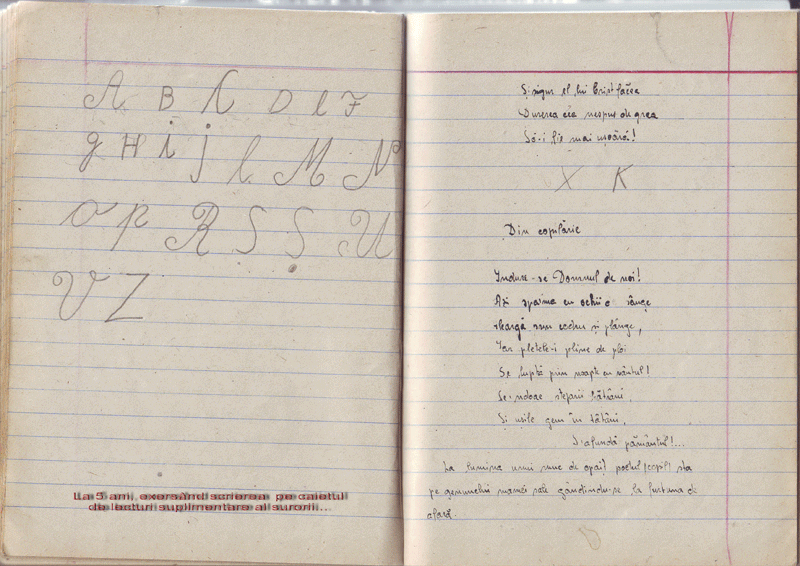 A B C D E F
g H i j l M N
O P R S Ș U
V Z
La 5 ani, exersând scrierea pe caietul
de lecturi suplimentare al surorii...
Și sigur el lui Crist făcea
Durerea cea nespus de grea
Să-i fie mai ușoară!
X K
Din copilărie
Indure-se Domnul de noi!
Azi spaima cu ochii o sânge
și plânge,
Iar pletele-i pline de ploi
Se luptă prin noapte cu vântul!
Se-ndoae stejarii bătrâni,
Și ușile gem în țâțâni,
S'afundă pământul!...
La lumina unui muc de opaiț poetul (copil) sta
pe genunchii mamei sale gândindu-se la furtuna de
afară.